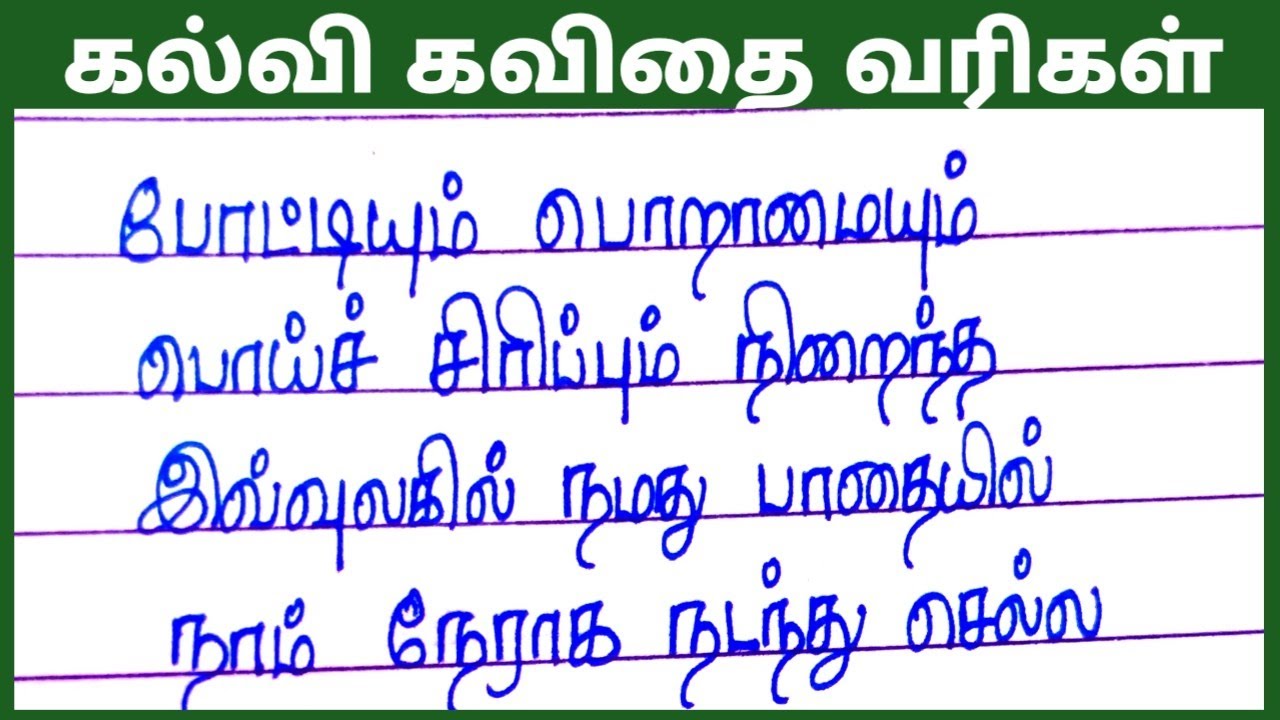 கல்வி கவிதை வரிகள்
போட்டியும் பொறாமையும்
பொய்ச் சிரிப்பும் நிறைந்த
இவ்வுலகில் நமது பாதையில்
நாம் நேராக நடந்து செல்ல